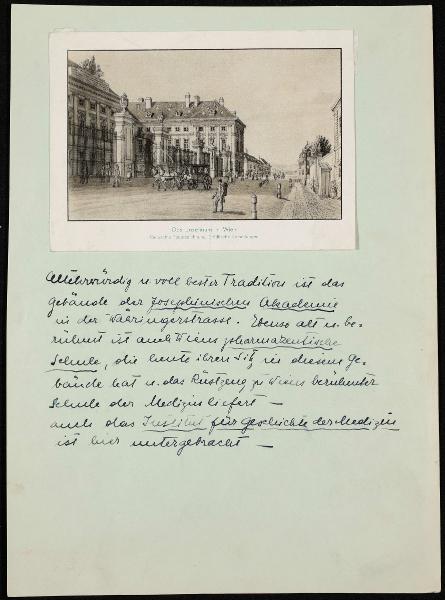 Das Josephinum in Wien
Altehrwürdig u. voll bester Tradition ist das
Gebäude der Josephinischen Akademie
in der Währingerstrasse. Ebenso alt u. be-
rühmt ist auch Wiens pharmazeutische
Schule, die heute ihren Sitz in diesem Ge-
bäude hat u. das Rüstzeug zu Wiens berühmter
Schule der Medizin liefert —
auch das Institut für Geschichte der Medizin
ist hier untergebracht —